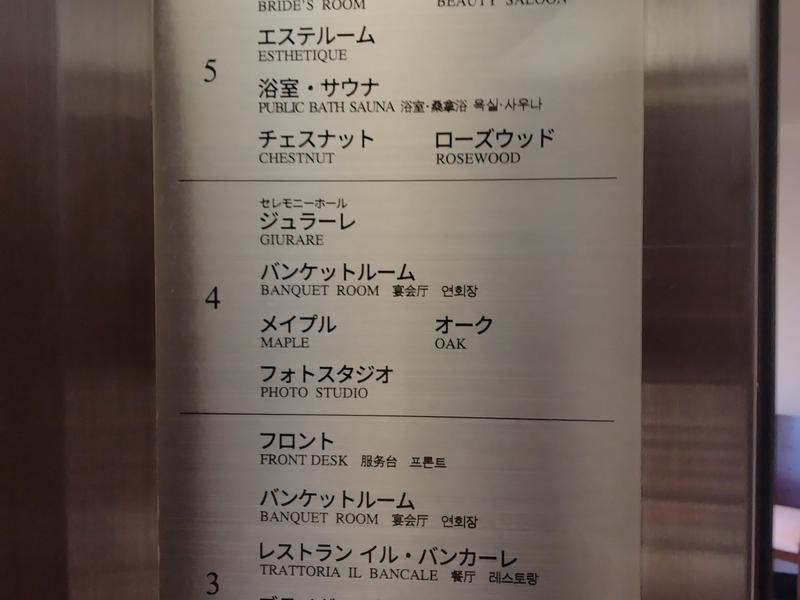 BRIDE'S ROOM BEAUTY SALOON
エステルーム
ESTHETIQUE
5
浴室・サウナ
PUBLIC BATH SAUNA 浴室·桑拿浴 욕실·사우나
チェスナット ローズウッド
CHESTNUT ROSEWOOD
セレモニーホール
ジュラーレ
GIURARE
バンケットルーム
BANQUET ROOM 宴会厅 연회장
4
メイプル オーク
MAPLE OAK
フォトスタジオ
PHOTO STUDIO
フロント
FRONT DESK 服务台 프론트
バンケットルーム
BANQUET ROOM 宴会厅 연회장
レストラン イル・バンカーレ
TRATTORIA IL BANCALE 餐厅 레스토랑
3